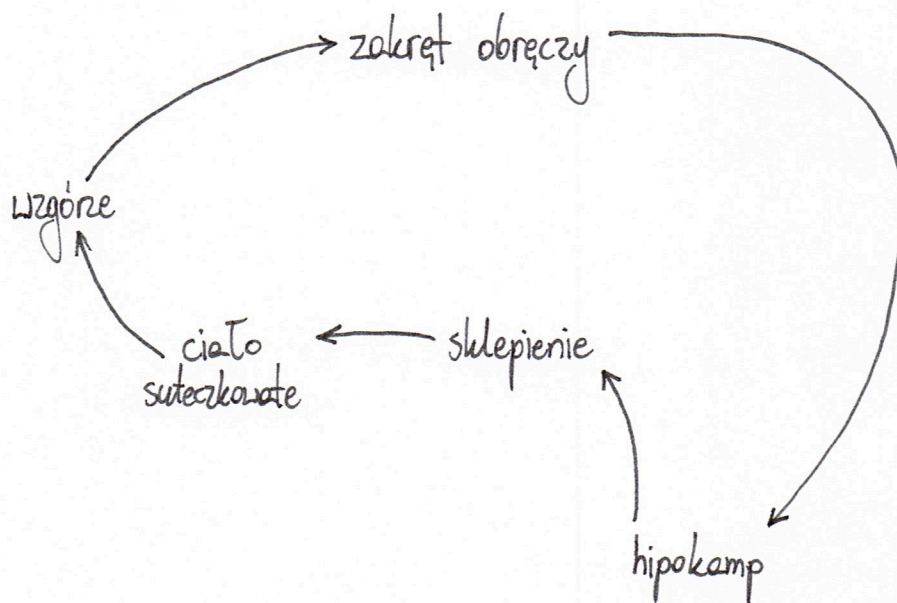 zakręt obręczy
wzgórze
ciało
suteczkowate
sklepienie
hipokamp